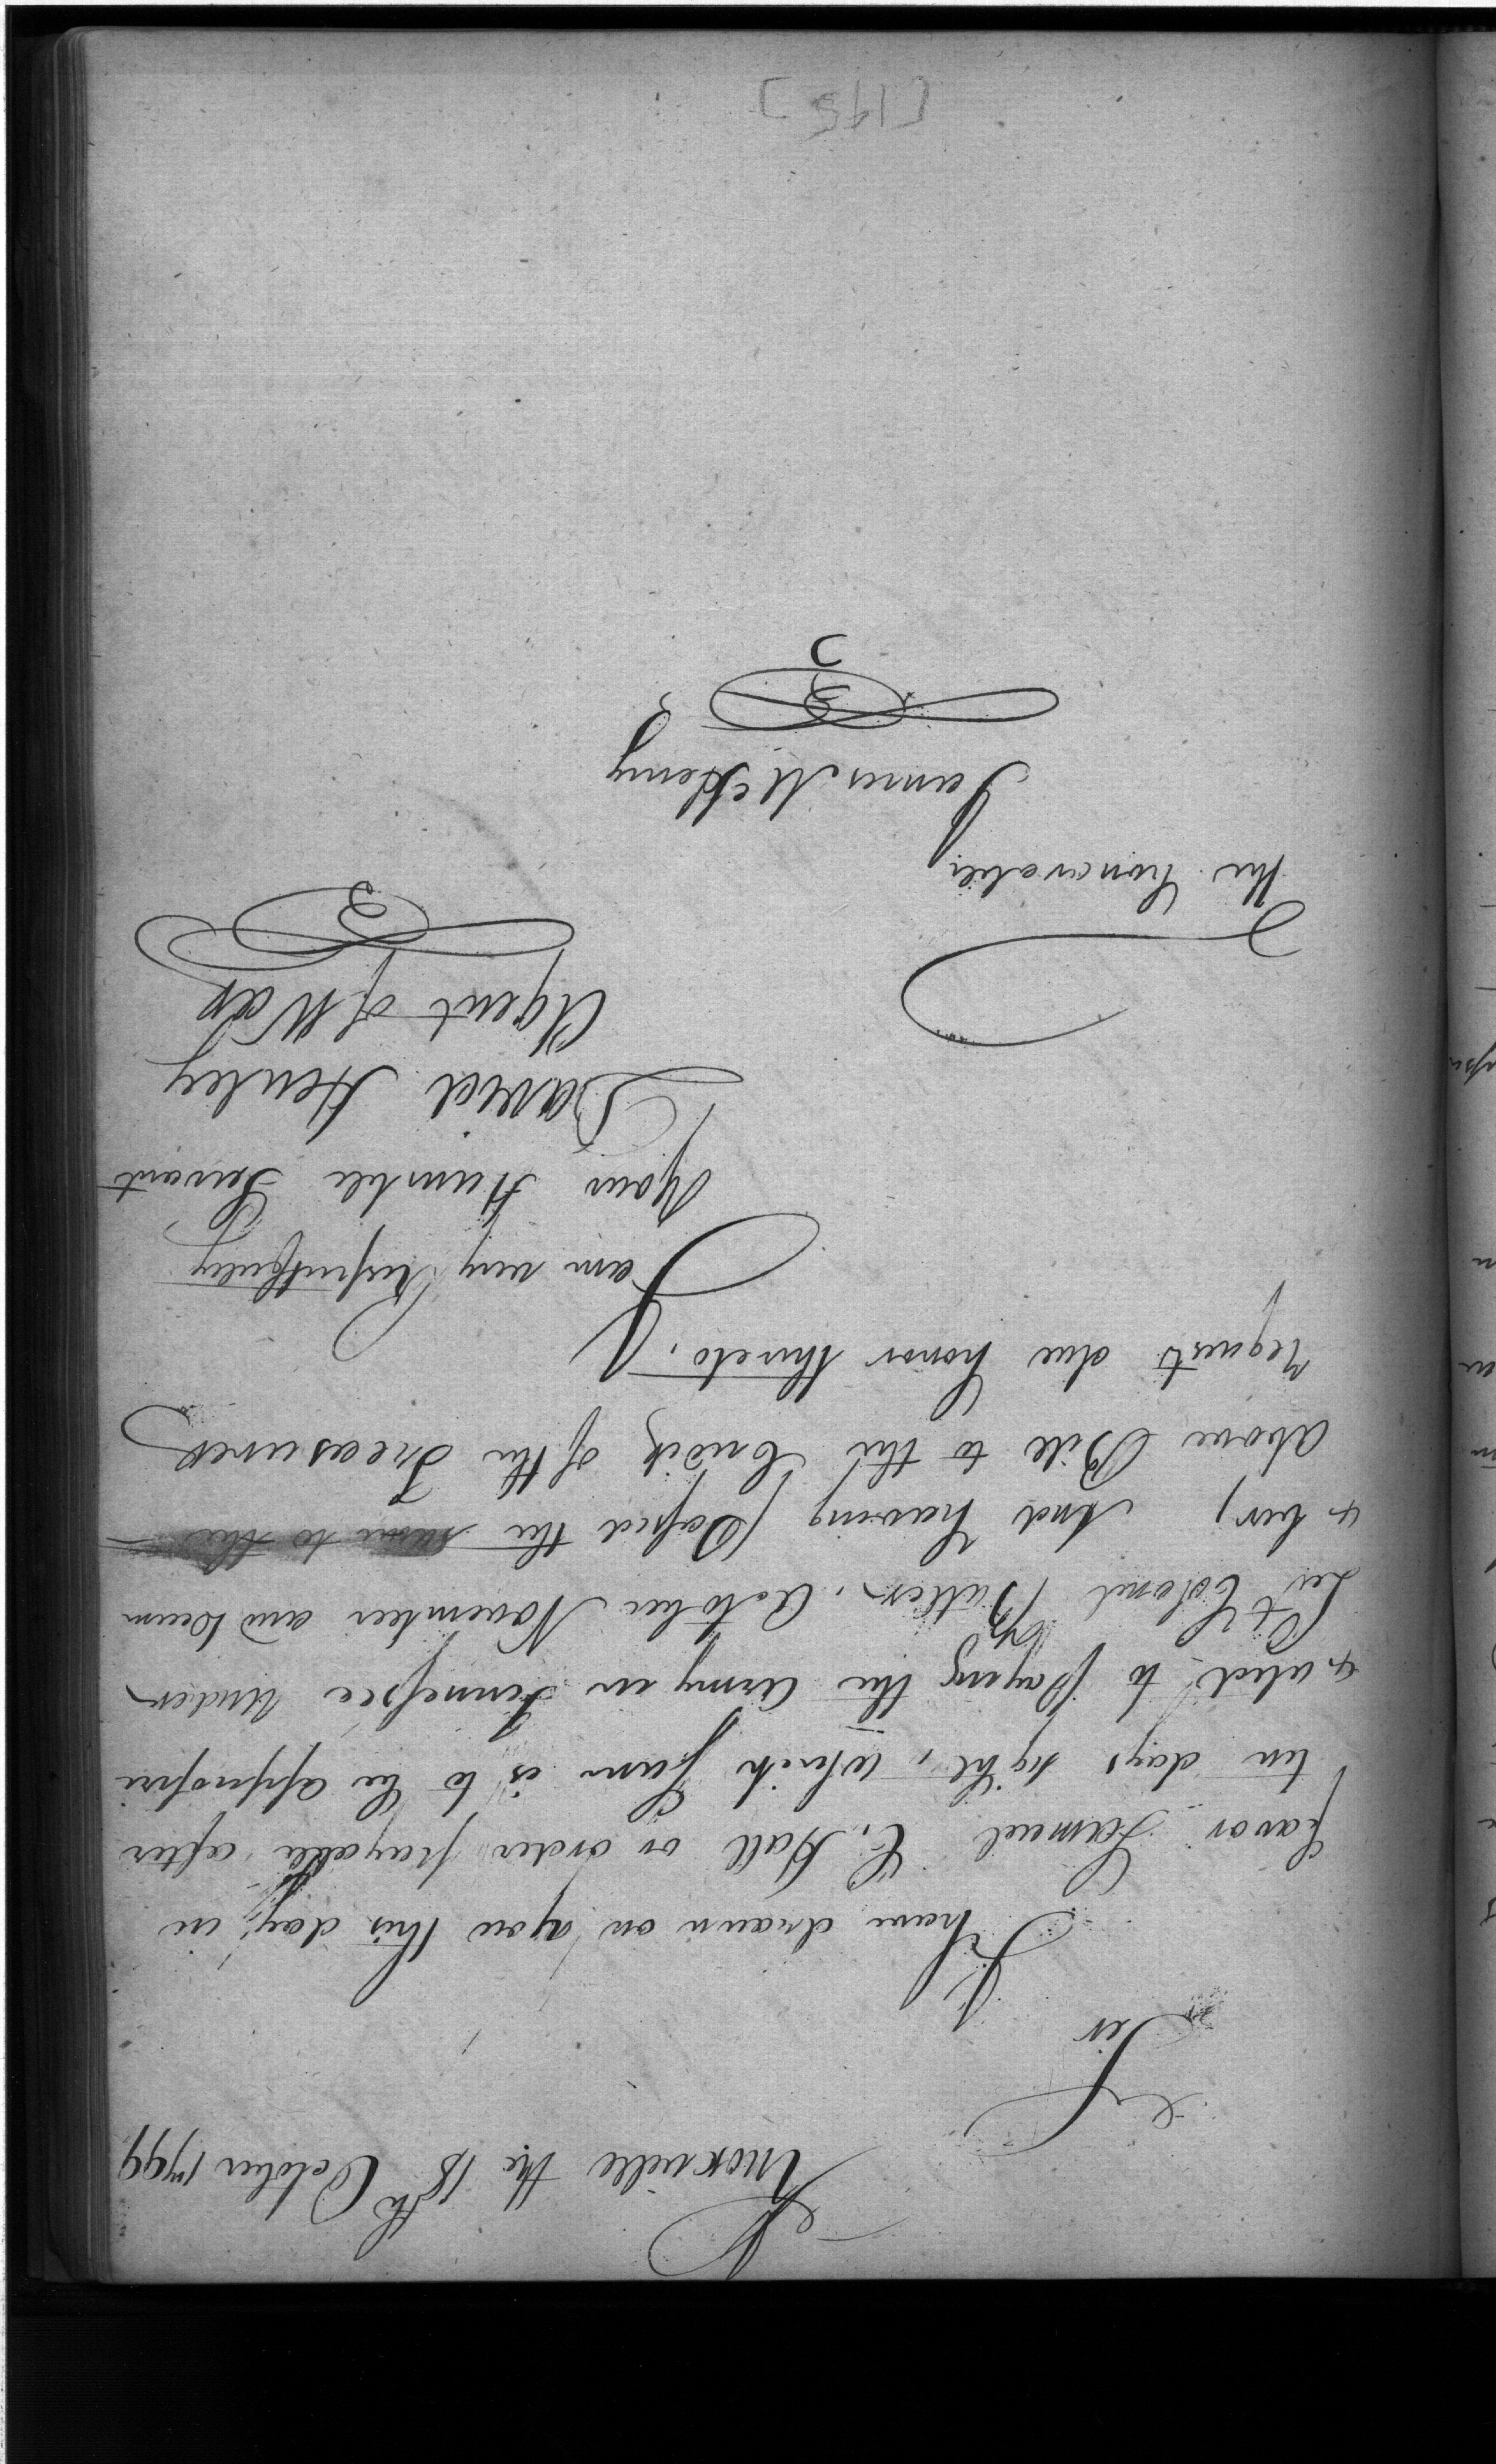 Knoxville the 18th October 1799
Sir
I have drawn on you this day in
favor Samuel E. Hall or order payable after
ten days sight, which sum is to be appropri
+ ated to paying the Army in Tennessee under
Lt Colonel Butler. October November and Decem
+ ber, And having passed the same to the
above Bill to the Credit of the Treasurer
request due honor thereto.
I am very Respectfully
Your Humble Servant
David Henley
Agent of War
The honorable
James McHenry
[195]